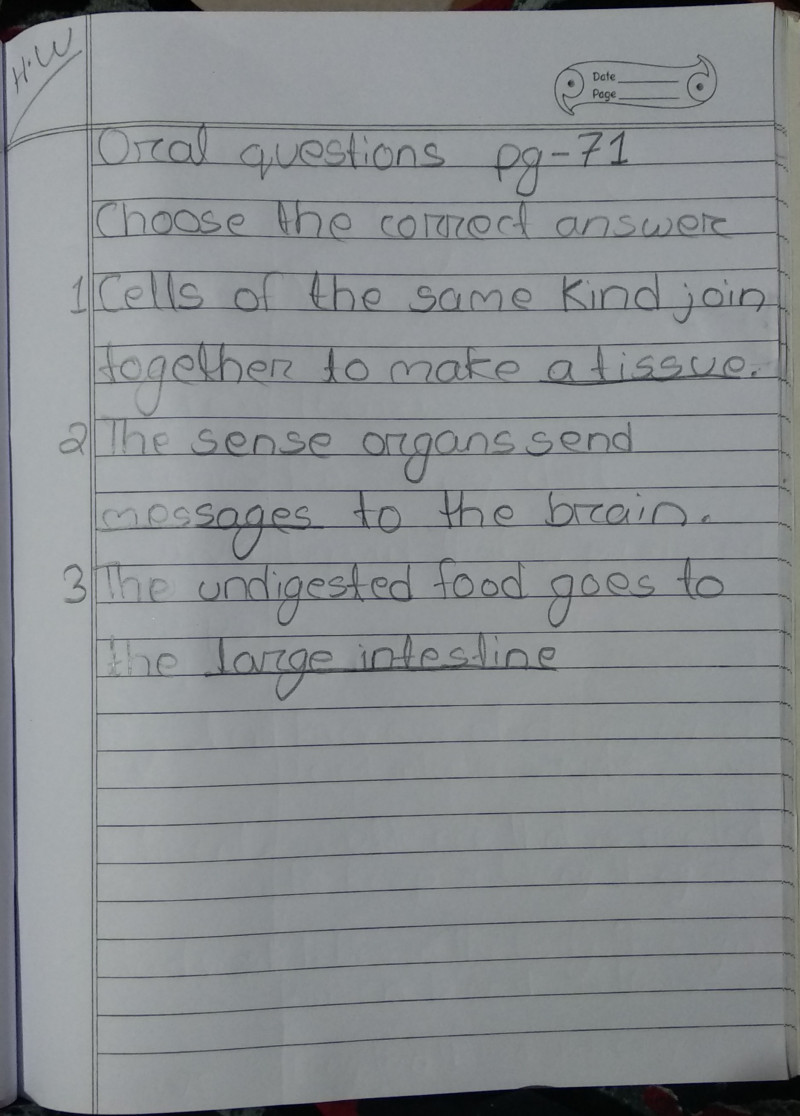 H.W
Date
Page
Oral questions pg-71
Choose the correct answer
1 Cells of the same kind join
together to make a tissue.
2 The sense organs send
messages to the brain.
3 The undigested food goes to
the large intestine